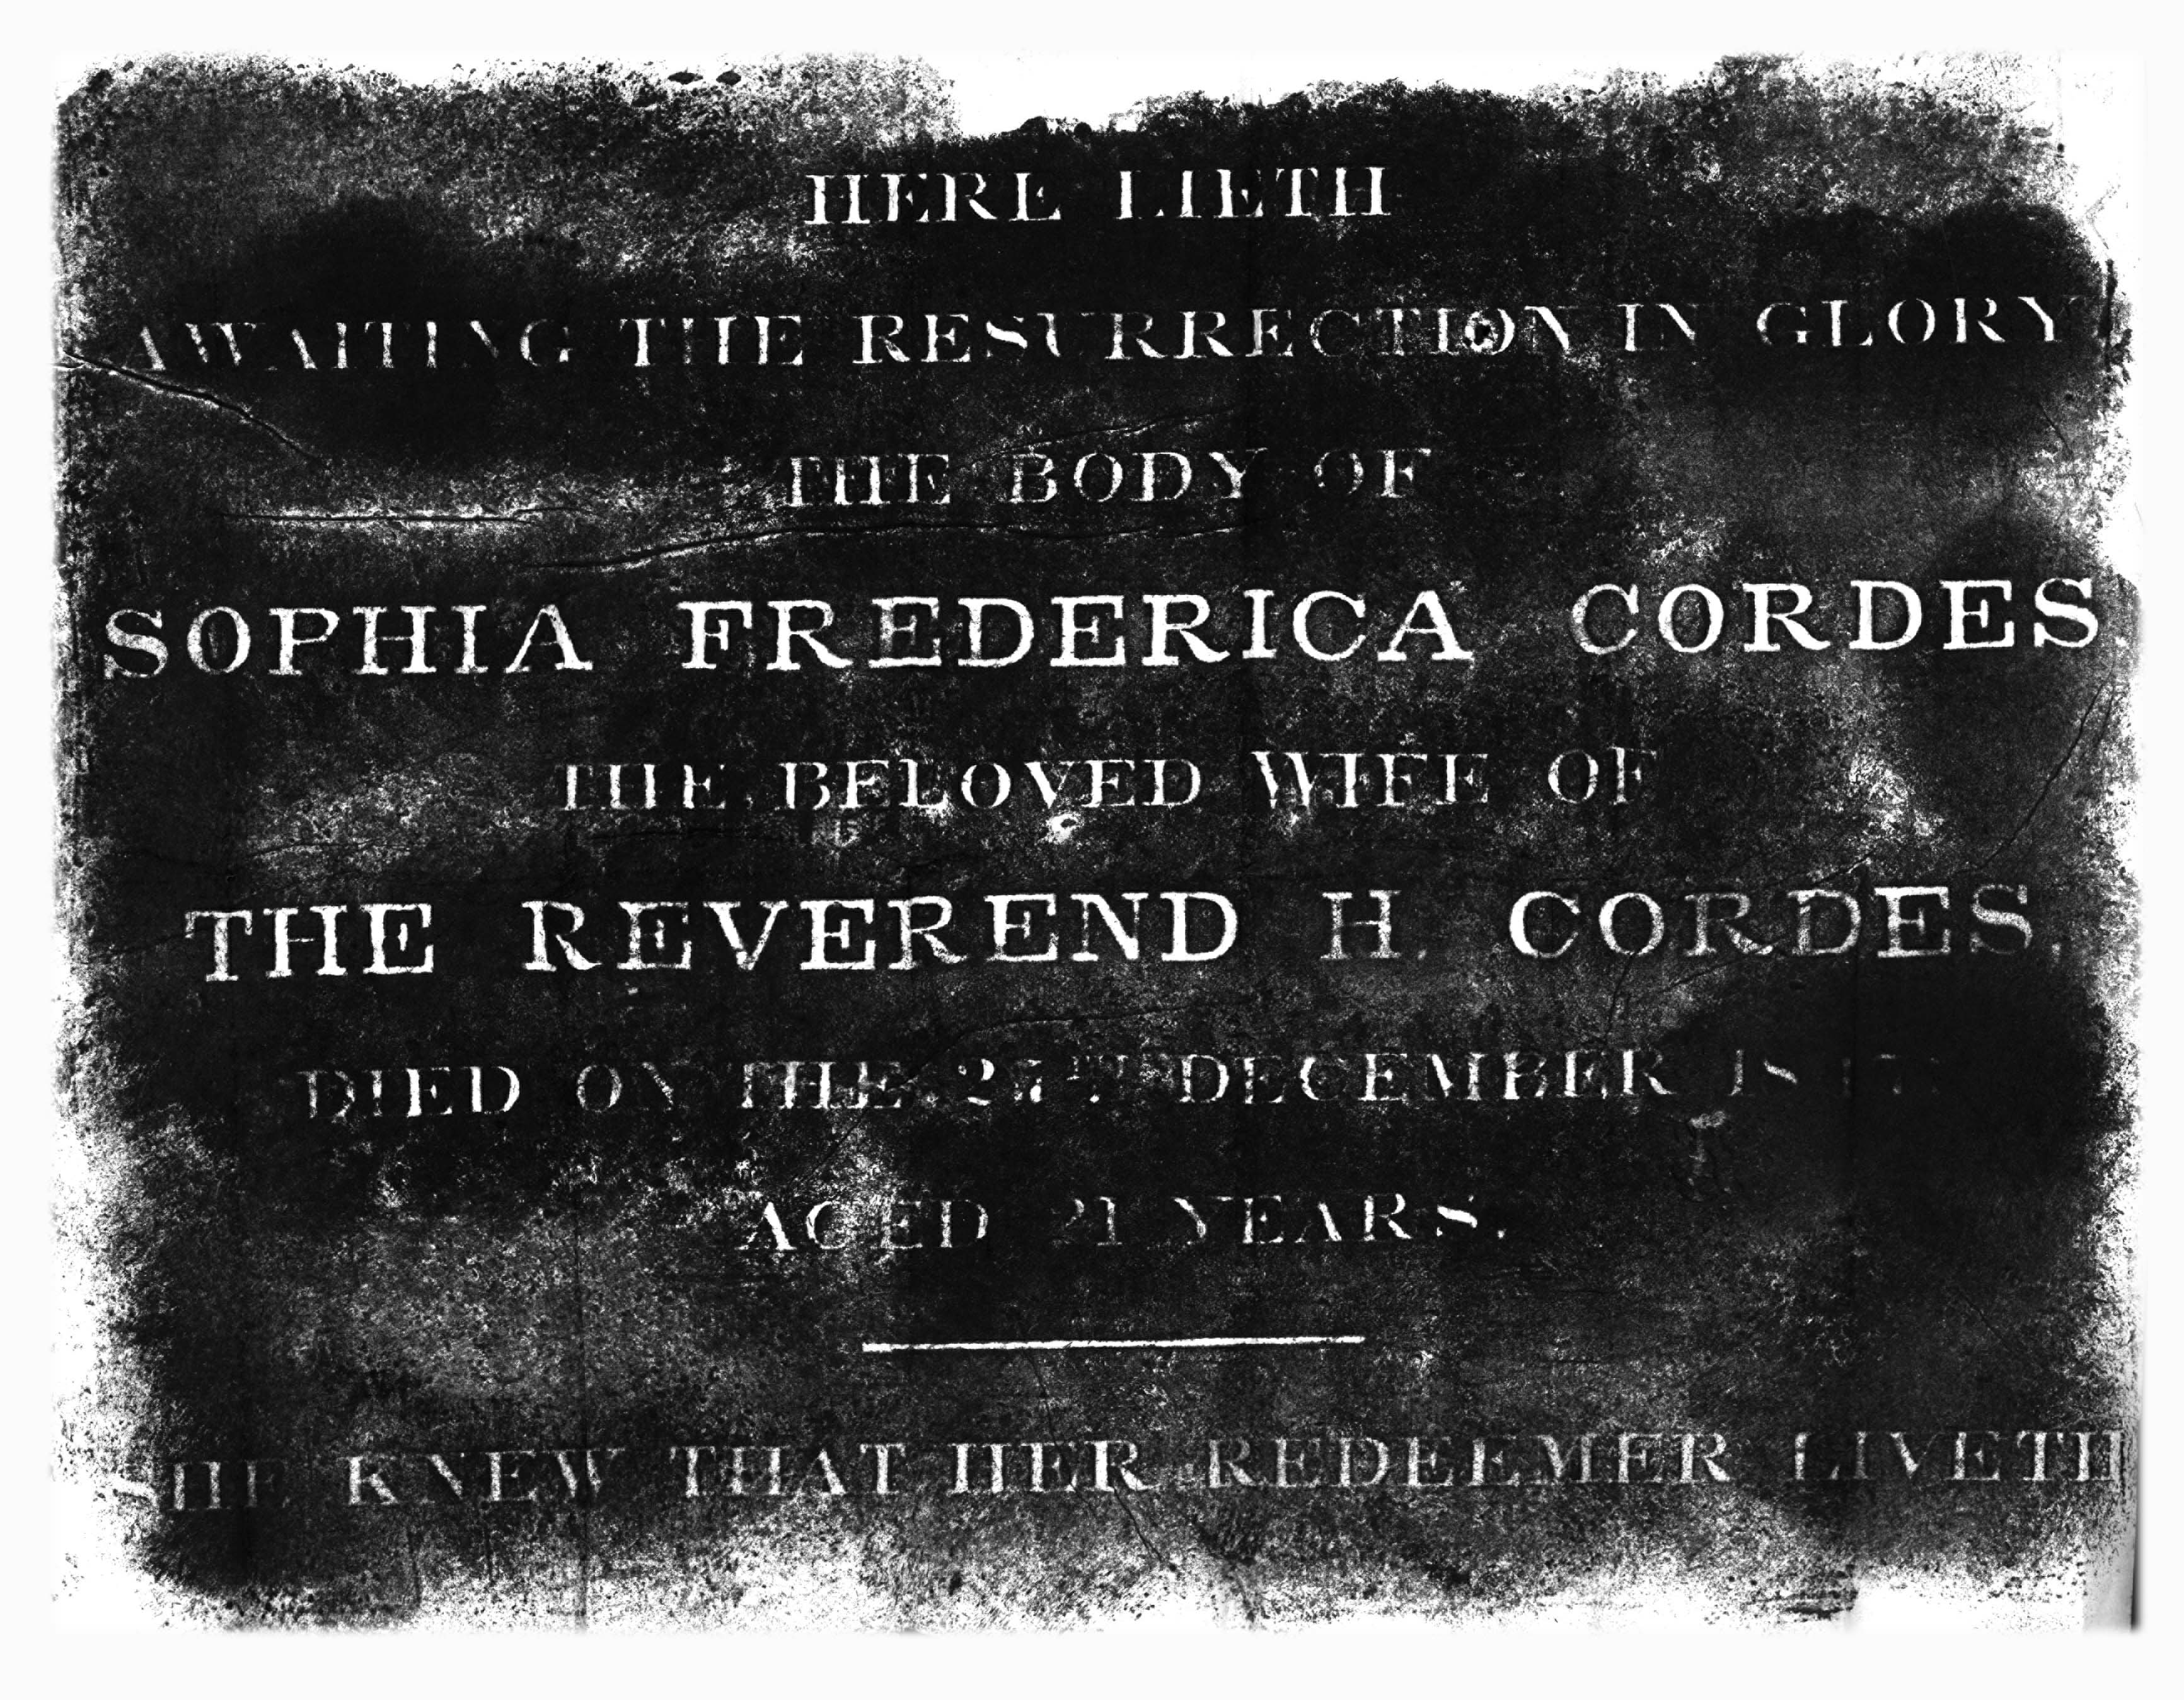 HERE LIETH
AWAITING THE RESURRECTION IN GLORY
THE BODY OF
SOPHIA FREDERICA CORDES.
THE BELOVED WIFE OF
THE REVEREND H. CORDES.
DIED ON THE DECEMBER
AGED 21 YEARS.
SHE KNEW THAT HER REDEEMER LIVETH